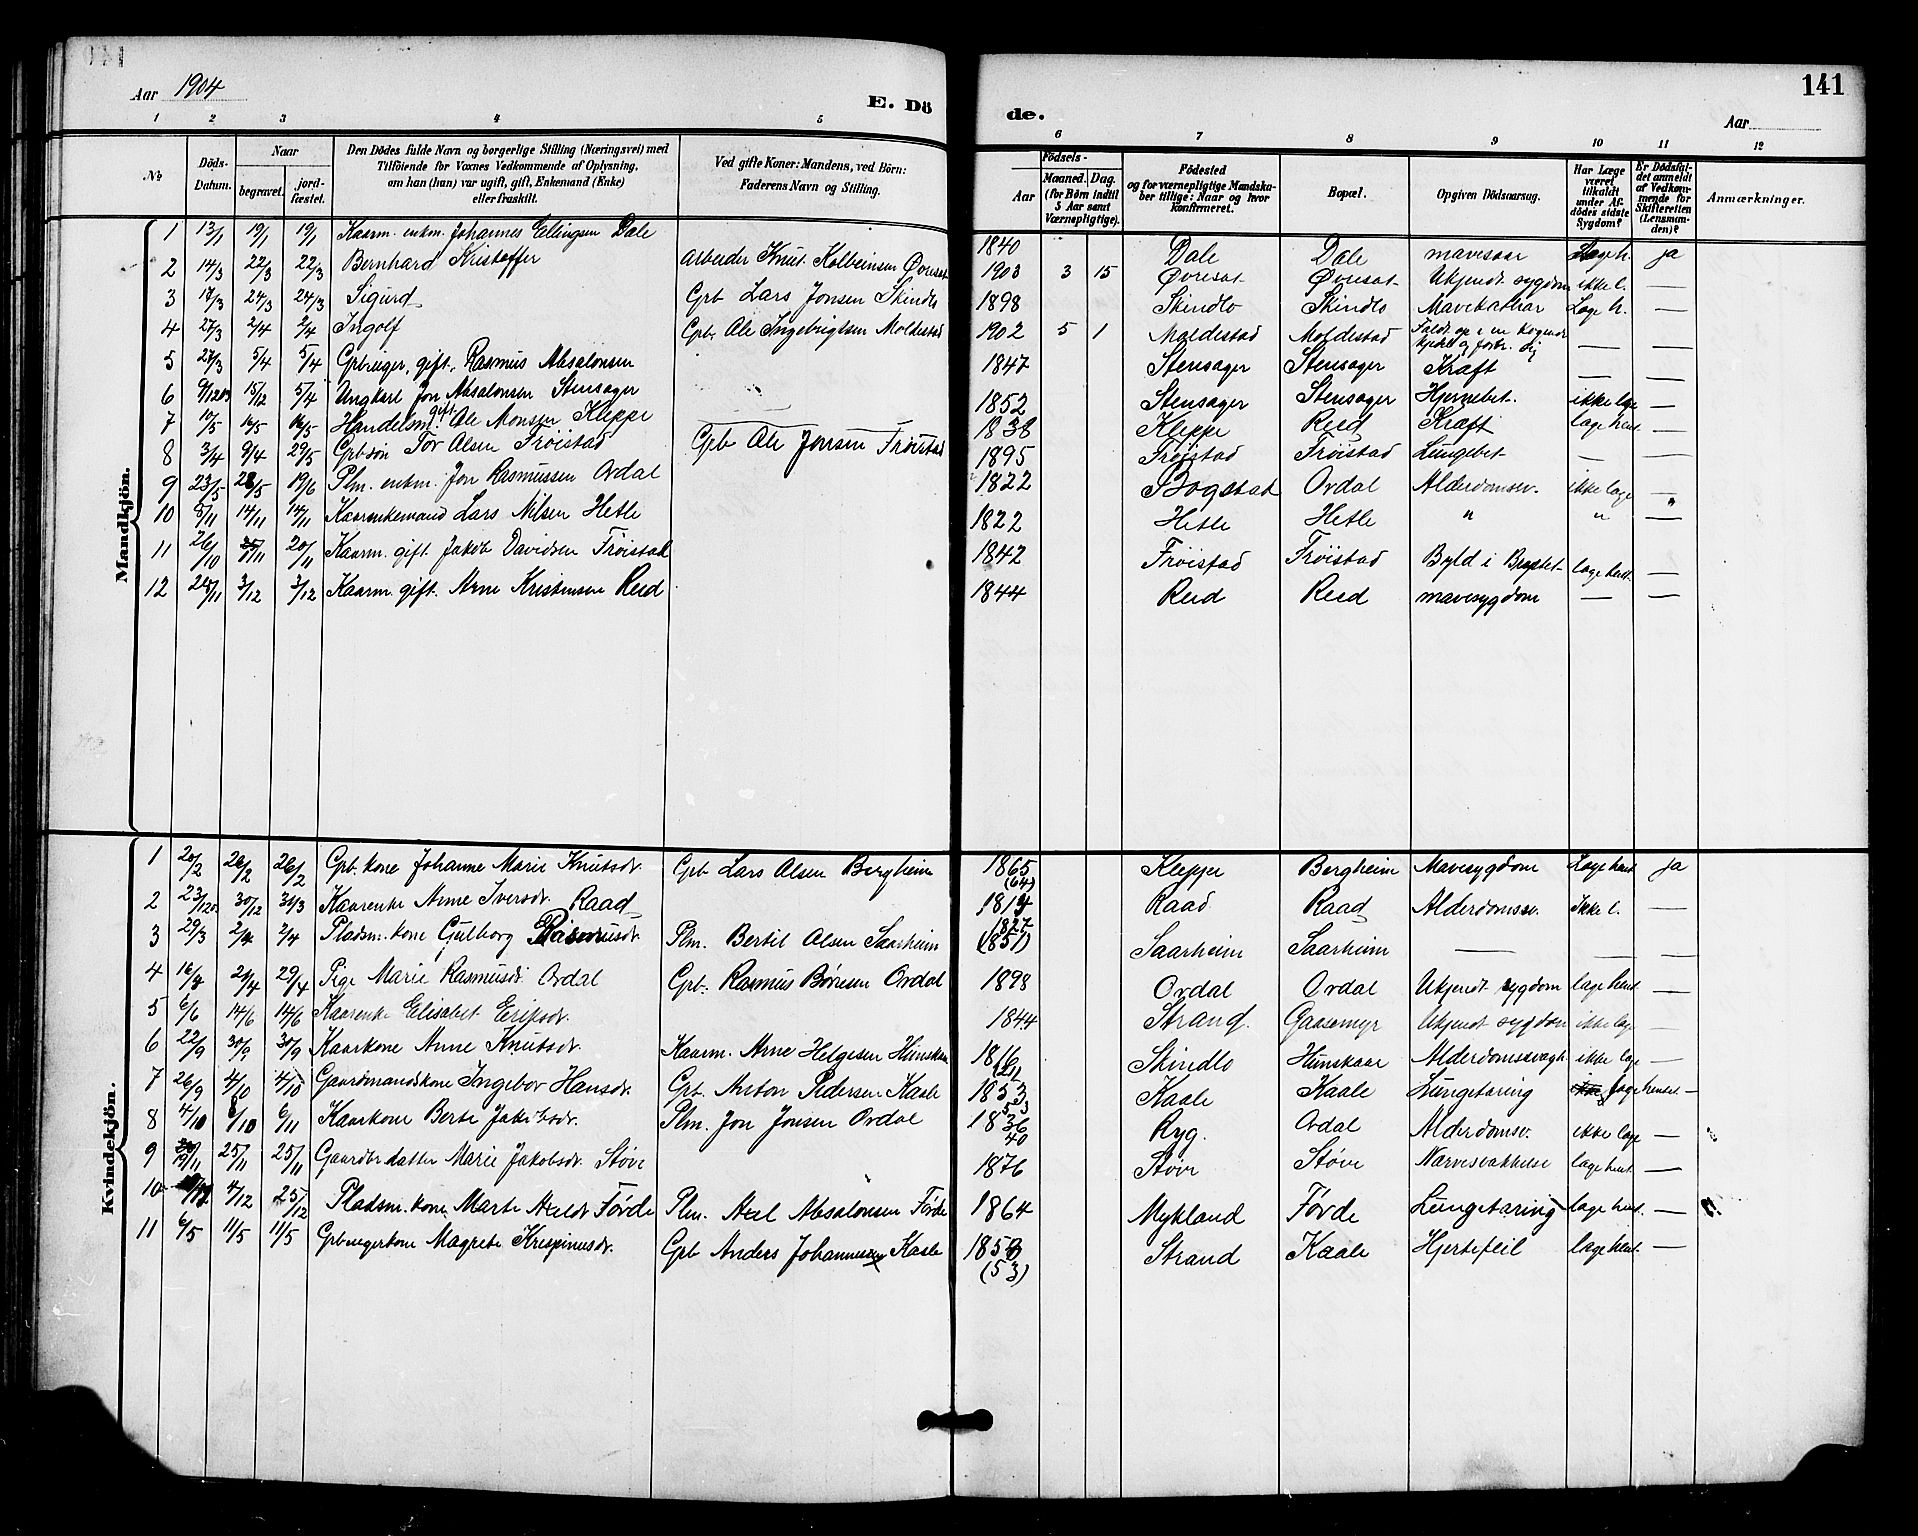 141
Aar 1904
E. Dö
de.
Aar
1 2 3 4 5 6 7 8 9 10 11 12
№
Döds-Datum.
Naar
begravet.
jord-fæstet.
Den Dödes fulde Navn og borgerlige Stilling (Næringsvei) med
Tilföiende for Voxnes Vedkommende af Oplysning,
om han (hun) var ugift, gift, Enkemand (Enke)
eller fraskilt.
Ved gifte Koner: Mandens, ved Börn:
Faderens Navn og Stilling.
Födsels-
Aar
Maaned. Dag.
(for Börn indtil
5 Aar samt
Værnepligtige).
Födested
og for værnepligtige Mandska-
ber tillige: Naar og hvor
konfirmeret.
Bopæl.
Opgiven Dödsaarsag.
Har Læge
været
tilkaldt
under Af-
dödes sidste
Sygdom?
Er Dödsfal-
det anmeldt
af Vedkom-
mende for
Skifteretten
(Lensman-
den)?
Anmærkninger.
Mandkjön.
1 13/1 19/1 19/1 Kaarm. enkm. Johannes Ellingsen Dale 1840 Dale Dale mavesaar Lægeh. ja
2 14/3 22/3 22/3 Bernhard Kristoffer Arbeider Knut Kolbeinsen Øvresat 1903 3 15 Øvresat Øvresat Ukjendt sygdom ikke l. —
3 17/3 24/3 24/3 Sigurd Grb Lars Jonsen Skindlo 1898 Skindlo Skindlo Mavekathar Læge h. —
4 27/3 2/4 2/4 Ingolf Grb. Ole Ingebrigtsen Moldestad 1902 5 1 Moldestad Moldestad Faldt op i en kogende kjedel og forbr. sig — —
5 27/3 5/4 5/4 Grbruger, gift, Rasmus Absalonsen 1847 Stensager Stensager Kræft — —
6 9/12 03 15/12 5/4 Ungkarl Jon Absalonsen Stensager 1852 Stensager Stensager Hjernebet. ikke læge —
7 10/5 16/5 16/5 Handelsm. gift Ole Monsen Kleppe 1838 Kleppe Reed Kræft læge hent —
8 3/4 9/4 29/5 Grb søn Tor Olsen Frøistad Grb Ole Jonsen Frøistad 1895 Frøistad Frøistad Lungebet. — —
9 23/5 28/5 19/6 Plm. enkm. Jon Rasmussen Ordal 1822 Bogstad Ordal Alderdomssv. ikke læge —
10 8/11 14/11 14/11 Kaarenkemand Lars Nilsen Hetle 1822 Hetle Hetle " " —
11 26/10 /11 20/11 Kaarm. gift. Jakob Davidsen Frøistad 1842 Frøistad Frøistad Byld i Brystet læge hent. —
12 28/11 3/12 3/12 Kaarm. gift. Arne Kristensen Reed 1844 Reed Reed mavesygdom — —
Kvindekjön.
1 20/2 26/2 26/2 Grb. kone Johanne Marie Knutsdr. Grb Lars Olsen Bergheim 1865 (64) Kleppe Bergheim Mavesygdom Læge hent ja
2 23/12 30/12 31/3 Kaarenke Anne Iversdr. Raad 1814 Raad Raad Alderdomssv. Ikke l. —
3 29/3 2/4 2/4 Pladsm. kone Gulborg Rasmusdr. Plm. Bertil Olsen Saarheim 1827 (1851) Saarheim Saarheim — —
4 16/4 21/4 29/4 Pige Marie Rasmusdr. Ordal Grb. Rasmus Børresen Ordal 1898 Ordal Ordal Ukjendt sygdom læge hent —
5 6/6 14/6 14/6 Kaarenke Elisabet Eriksdr. 1844 Strand Gaasemyr Ukjendt sygdom ikke læge —
6 22/9 30/9 30/9 Kaarkone Anne Knutsdr. Kaarm. Arne Helgesen Hunskaar 1816 (21) Skindlo Hunskaar Alderdomssvagh ikke læge —
7 26/9 4/10 4/10 Gaardmandskone Ingebor Hansdr. Grb. Anton Pedersen Kaale 1853 Kaale Kaale Lungetæring læge hentet —
8 4/10 8/10 6/11 Kaarkone Berte Jakobsdr. Plm. Jon Jonsen Ordal 1836 40 Ryg. Ordal Alderdomsv. ikke læge —
9 19/11 25/11 25/11 Gaardbr datter Marie Jakobsdr. Støve 1876 Støve Støve Nervesvækkelse læge hent. —
10 4/12 25/12 Pladsm. kone Marte Axeldr. Førde Plm. Axel Absalonsen Førde 1864 Mykland Førde Lungetæring læge hent. —
11 6/5 11/5 11/5 Grbrugerkone Magrete Krispinusdr. Grb Anders Johannessen Kaale 1858 (53) Strand Kaale Hjertefeil læge hent. —